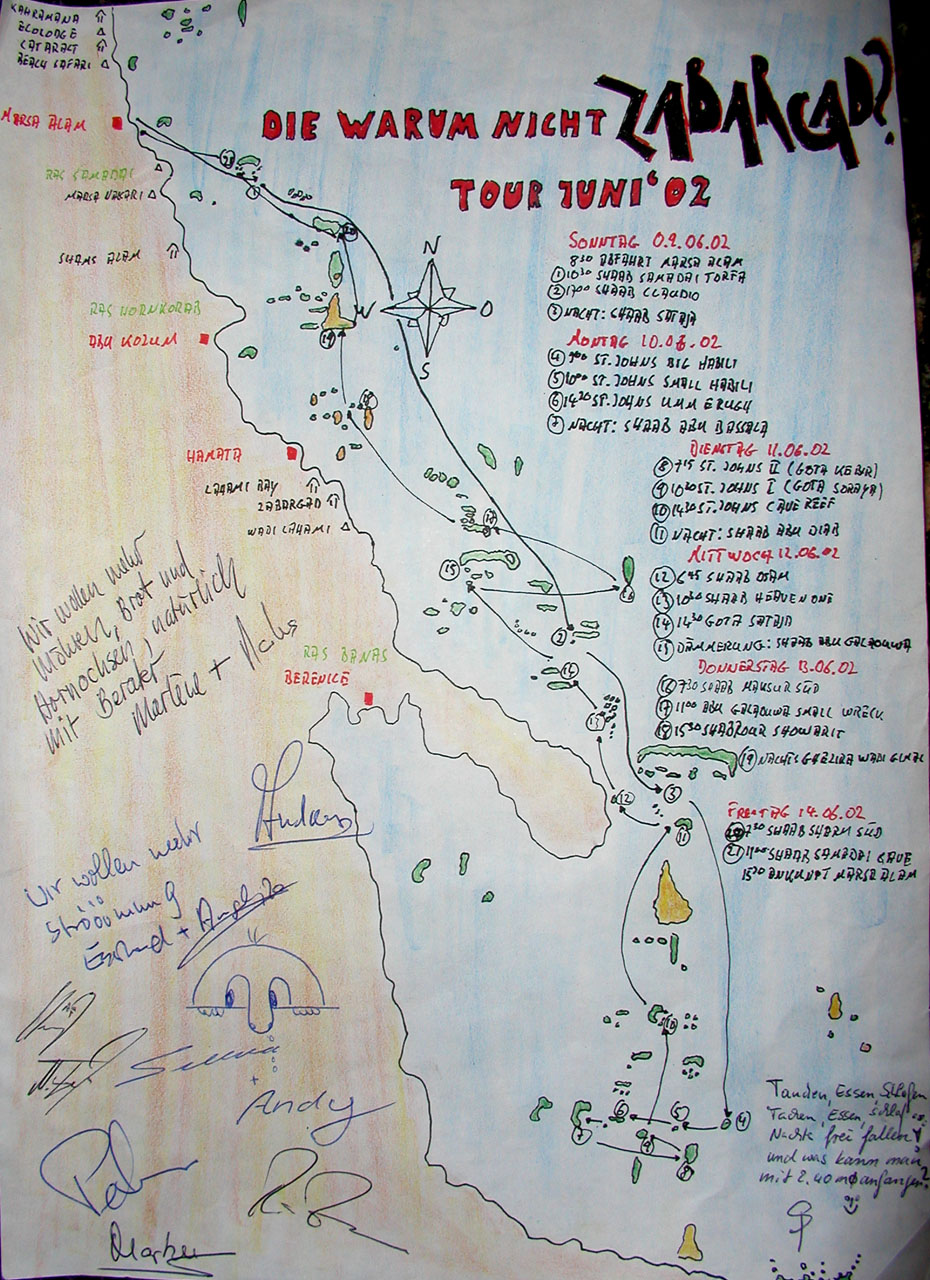 KAHRAMANA
ECOLODGE
CATARACT
BEACH SAFARI
MARSA ALAM
RAS SAMADAI
MARSA NAKARI
SHAMS ALAM
RAS HORNKORAB
ABU KOZUM
HAMATA
LAHAMI BAY
ZABARGAD
WADI LAHAMI
RAS BANAS
BERENICE
DIE WARUM NICHT ZABARGAD?
TOUR JUNI '02
N
W O
S
SONNTAG 09.06.02
8³⁰ ABFAHRT MARSA ALAM
① 10³⁰ SHAAB SAMADAI TORFA
② 17⁰⁰ SHAAB CLAUDIO
③ NACHT: SHAAB SATAJA
MONTAG 10.06.02
④ 7⁰⁰ ST. JOHNS BIG HABILI
⑤ 10⁰⁰ ST. JOHNS SMALL HABILI
⑥ 14³⁰ ST. JOHNS UMM ERUGH
⑦ NACHT: SHAAB ABU BASSALA
DIENSTAG 11.06.02
⑧ 7¹⁵ ST. JOHNS II (GOTA KEBIR)
⑨ 10³⁰ ST. JOHNS I (GOTA SORAYA)
⑩ 14³⁰ ST. JOHNS CAVE REEF
⑪ NACHT: SHAAB ABU DIAB
MITTWOCH 12.06.02
⑫ 6⁴⁵ SHAAB OSAM
⑬ 10³⁰ SHAAB HEAVEN ONE
⑭ 14³⁰ GOTA SATAJA
⑮ DÄMMERUNG: SHAAB ABU GALAOUWA
DONNERSTAG 13.06.02
⑯ 7³⁰ SHAAB MANSUR SÜD
⑰ 11⁰⁰ ABU GALAOUWA SMALL WRECK
⑱ 15³⁰ SHABROUR SHOWARIT
⑲ NACHTS GHEZIRA WADI GIMAL
FREITAG 14.06.02
⑳ 7³⁰ SHAAB SHARM SÜD
㉑ 11⁰⁰ SHAAB SAMADAI CAVE
15³⁰ ANKUNFT MARSA ALAM
21
1
20
19
18
17
15
16
2
14
13
12
3
11
10
6 5 4
7 9
8
Wir wollen mehr
Möhren, Brot und
Hornochsen, natürlich
mit Beraker
Martene +
Wir wollen mehr
Ströömung
+
Andy
Markus
Essen, Schlafen
Essen, Schlaf...
Nachts frei fallen
und was kann man
mit 2.40 m anfangen?